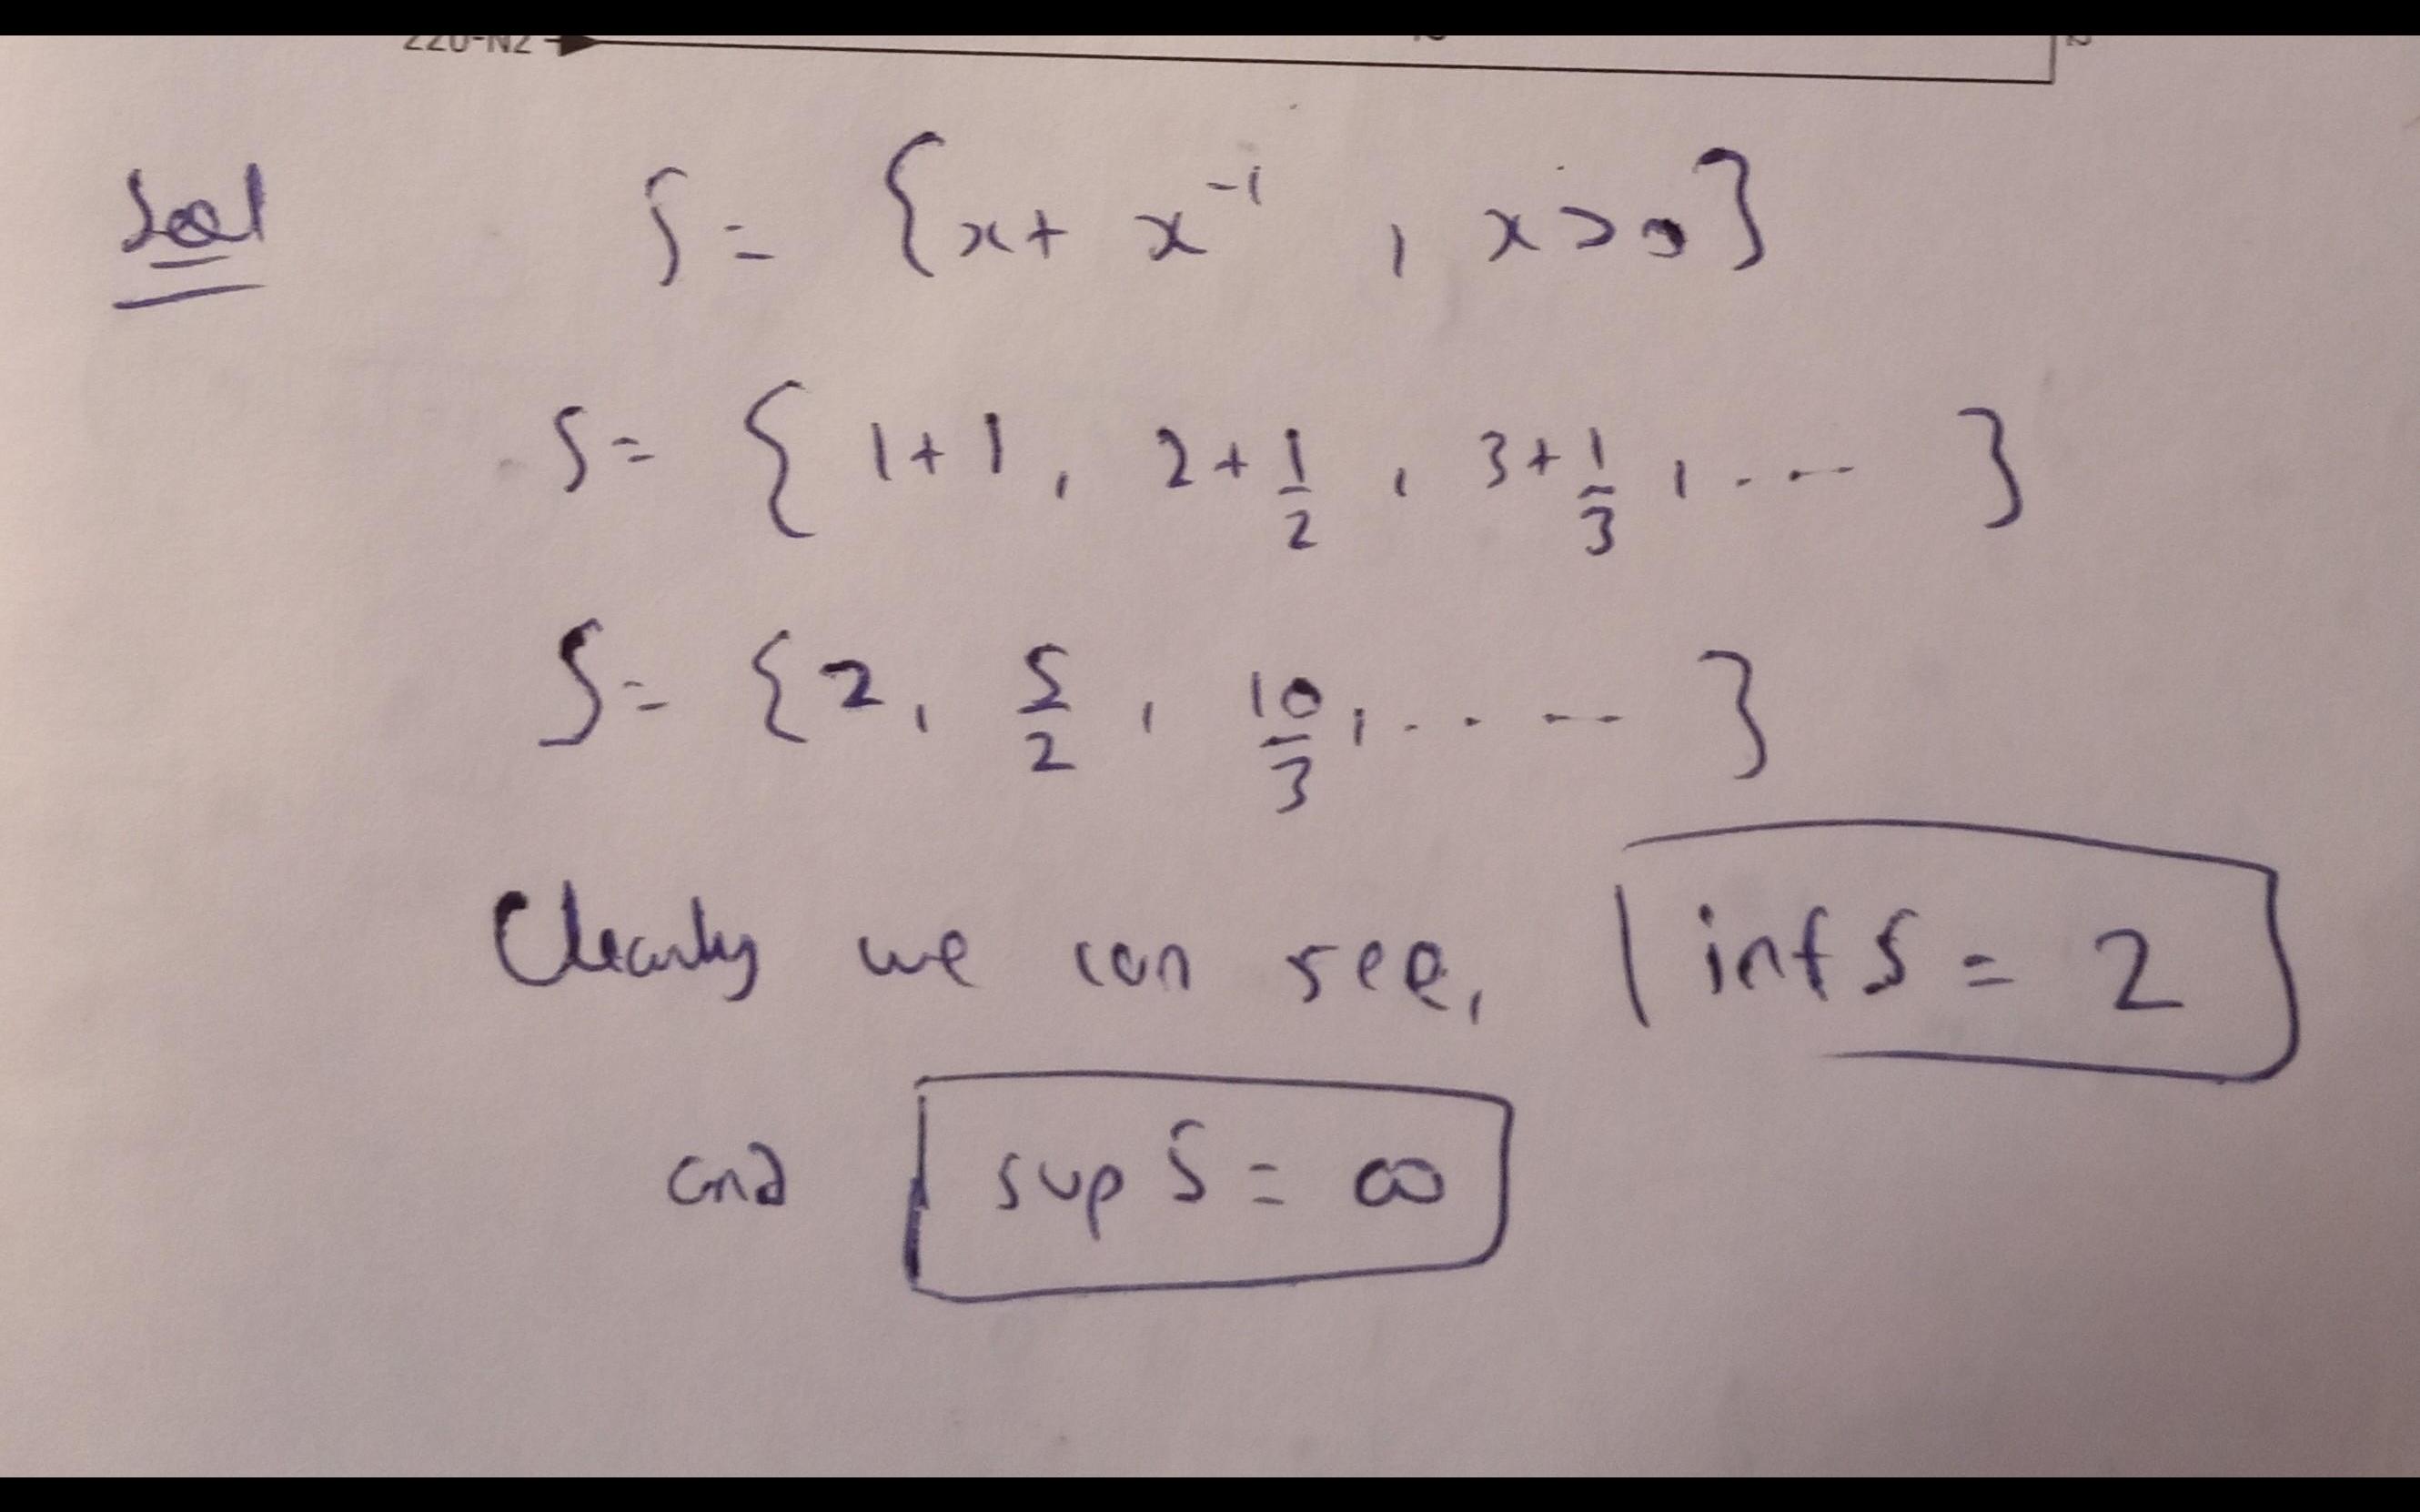 220-N2
Sol S = {x + x⁻¹ , x > 0}
S = { 1+1, 2+1/2, 3+1/3, ..... }
S = {2, 5/2, 10/3, ..... }
Clearly we can see, inf S = 2
and sup S = ∞